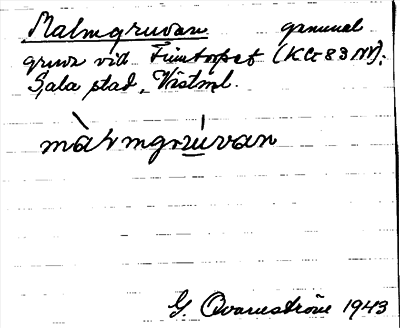 Malmgruvan gammal
gruva vid Finntorpet (KG 83 NV).
Sala stad, Västml.
màlmgrúvan
G. Qvarnström 1943